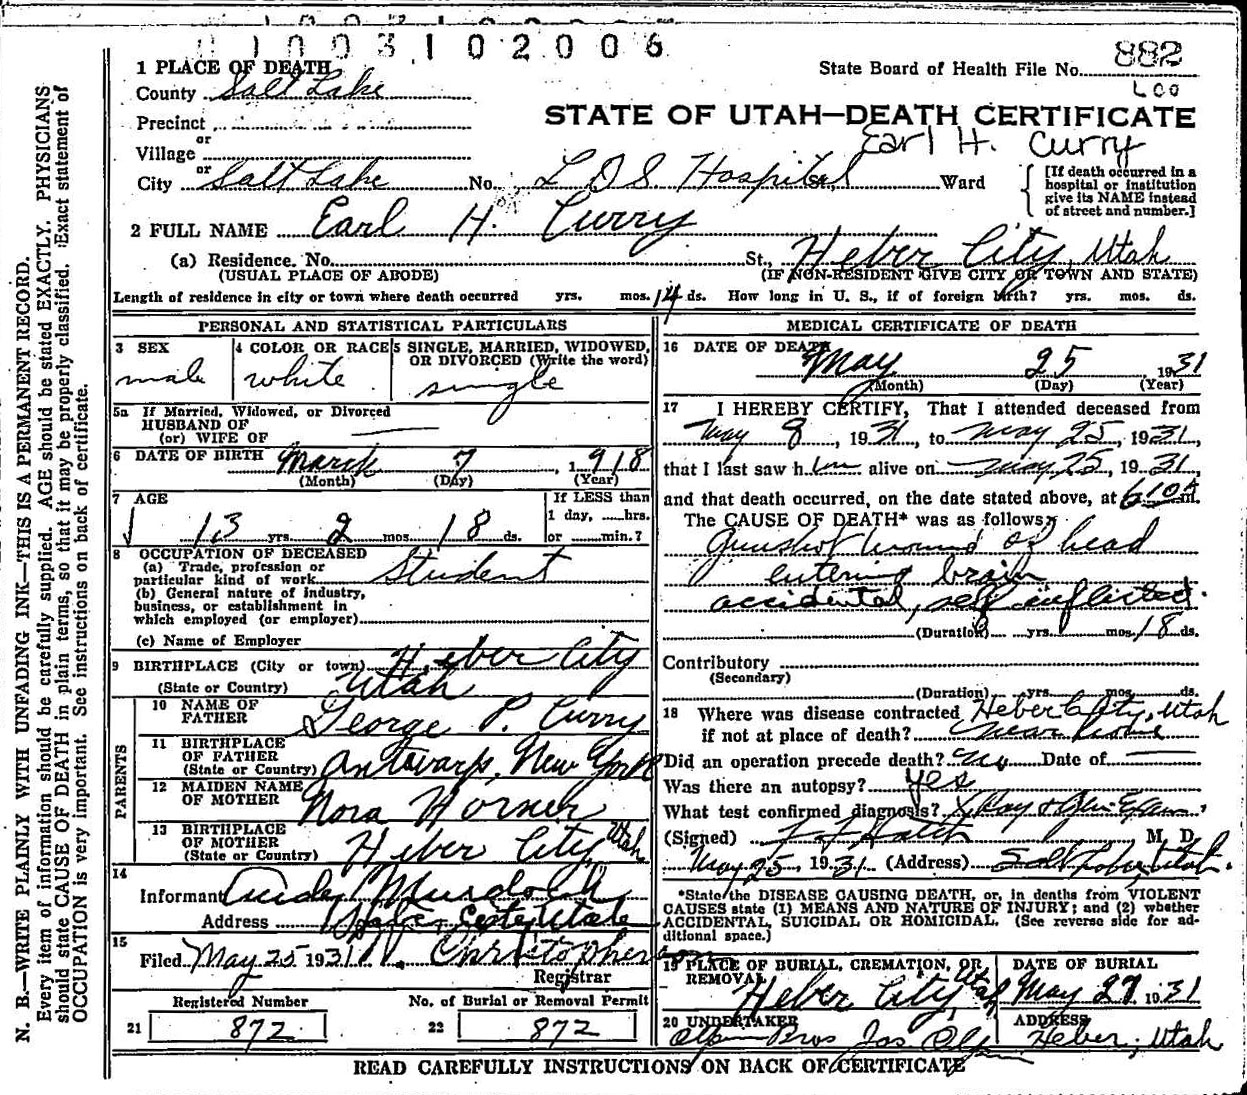 0 1 0 0 3 1 0 2 0 0 6
882
State Board of Health File No.
L00
1 PLACE OF DEATH
County Salt Lake
STATE OF UTAH—DEATH CERTIFICATE
Precinct
Earl H. Curry
or
Village
or
City Salt Lake No. L D S Hospital St., Ward
[If death occurred in a
hospital or institution
give its NAME instead
of street and number.]
2 FULL NAME Earl H. Curry
(a) Residence. No. St., Heber City, Utah
(USUAL PLACE OF ABODE) (IF NON-RESIDENT GIVE CITY OR TOWN AND STATE)
Length of residence in city or town where death occurred yrs. mos. 14 ds. How long in U. S., if of foreign birth? yrs. mos. ds.
PERSONAL AND STATISTICAL PARTICULARS
3 SEX
male
4 COLOR OR RACE
white
5 SINGLE, MARRIED, WIDOWED,
OR DIVORCED (Write the word)
single
5a If Married, Widowed, or Divorced
HUSBAND OF
(or) WIFE OF
6 DATE OF BIRTH March 7, 1918
(Month) (Day) (Year)
7 AGE
13 yrs. 2 mos. 18 ds.
If LESS than
1 day, hrs.
or min.?
8 OCCUPATION OF DECEASED
(a) Trade, profession or
particular kind of work Student
(b) General nature of industry,
business, or establishment in
which employed (or employer)
(c) Name of Employer
9 BIRTHPLACE (City or town) Heber City
(State or Country) Utah
PARENTS
10 NAME OF
FATHER George P. Curry
11 BIRTHPLACE
OF FATHER
(State or Country) Antwarp, New York
12 MAIDEN NAME
OF MOTHER Nora Horner
13 BIRTHPLACE
OF MOTHER
(State or Country) Heber City, Utah
14
Informant Murdoch
Address Utah
15
Filed May 25 1931 Christopherson
Registrar
Registered Number
21 872
No. of Burial or Removal Permit
22 872
MEDICAL CERTIFICATE OF DEATH
16 DATE OF DEATH
May 25 1931
(Month) (Day) (Year)
17 I HEREBY CERTIFY, That I attended deceased from
May 8, 1931, to May 25, 1931,
that I last saw him alive on May 25, 1931,
and that death occurred, on the date stated above, at 610 A m.
The CAUSE OF DEATH* was as follows:
Gunshot wound of head
entering brain
accidental, self inflicted.
(Duration) yrs. mos. 18 ds.
Contributory
(Secondary)
(Duration) yrs. mos. ds.
18 Where was disease contracted Heber City, Utah
if not at place of death? near home
Did an operation precede death? No Date of
Was there an autopsy? yes
What test confirmed diagnosis? X Ray & Gen Exam.
(Signed) Hatch M. D.
May 25, 1931, (Address) Salt Lake, Utah.
*State the DISEASE CAUSING DEATH, or, in deaths from VIOLENT
CAUSES state (1) MEANS AND NATURE OF INJURY; and (2) whether
ACCIDENTAL, SUICIDAL OR HOMICIDAL. (See reverse side for ad-
ditional space.)
19 PLACE OF BURIAL, CREMATION, OR
REMOVAL Heber City, Utah
DATE OF BURIAL
May 27 1931
20 UNDERTAKER
Olpin Bros Jas Olpin
ADDRESS
Heber, Utah
READ CAREFULLY INSTRUCTIONS ON BACK OF CERTIFICATE
N. B.—WRITE PLAINLY WITH UNFADING INK—THIS IS A PERMANENT RECORD.
Every item of information should be carefully supplied. AGE should be stated EXACTLY. PHYSICIANS
should state CAUSE OF DEATH in plain terms, so that it may be properly classified. Exact statement of
OCCUPATION is very important. See instructions on back of certificate.